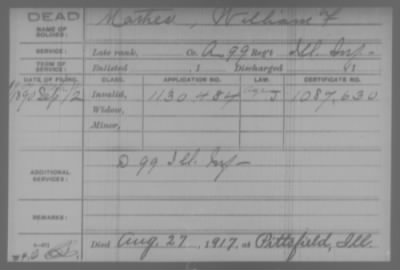 DEAD
NAME OF SOLDIER:
Mather, William F
SERVICE:
Late rank, Co. A, 99 Reg't Ill. Inf.
TERM OF SERVICE:
Enlisted , 1 Discharged , 1
DATE OF FILING. CLASS. APPLICATION NO. LAW. CERTIFICATE NO.
1890 Sep 12 Invalid, 1130484 1087,630
Widow,
Minor,
ADDITIONAL SERVICES:
D 99 Ill. Inf.
REMARKS:
Died Aug. 27, 1917, at Pittsfield, Ill.